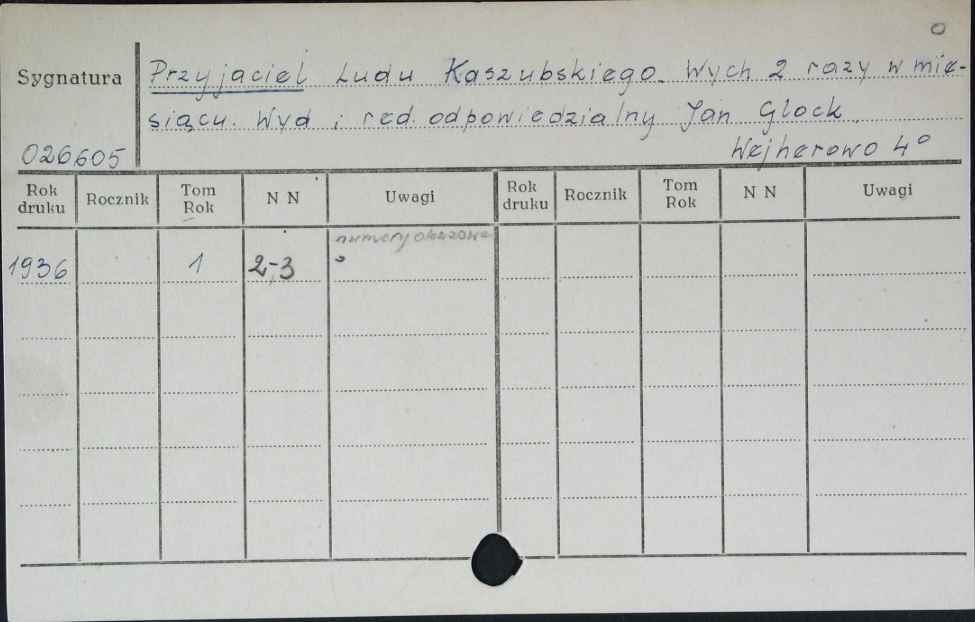 0
Sygnatura Przyjaciel Ludu Kaszubskiego. Wych 2 razy w mie-
siącu. Wyd i red. odpowiedzialny Jan Glock.
026605 Wejherowo 4°
Rok druku Rocznik Tom Rok N N Uwagi Rok druku Rocznik Tom Rok N N Uwagi
numery okazowe
1936 1 2-3 "